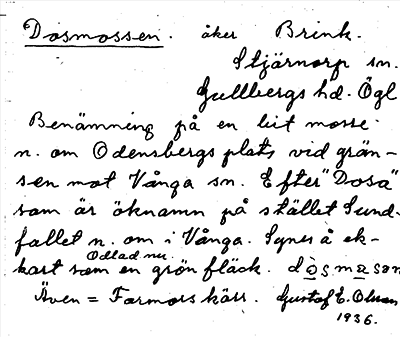 Dosmossen. åker Brink.
Stjärnorp sn.
Gullbergs hd. Ögl
Benämning på en bit mosse
n. om Odensbergs plats vid grän-
sen mot Vånga sn. Efter "Dosa"
som är öknamn på stället Sund-
fallet n. om i Vånga. Synes å ek-
Odlad nu.
kart som en grön fläck. dòsmåsan
Även = Farmorskärr. Gustaf E. Olsson
1936.